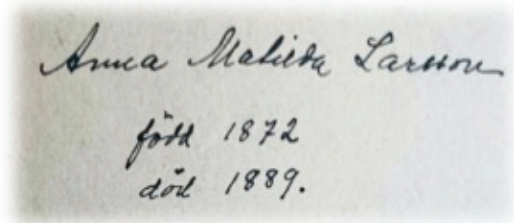 Anna Matilda Larsson
född 1872
död 1889.